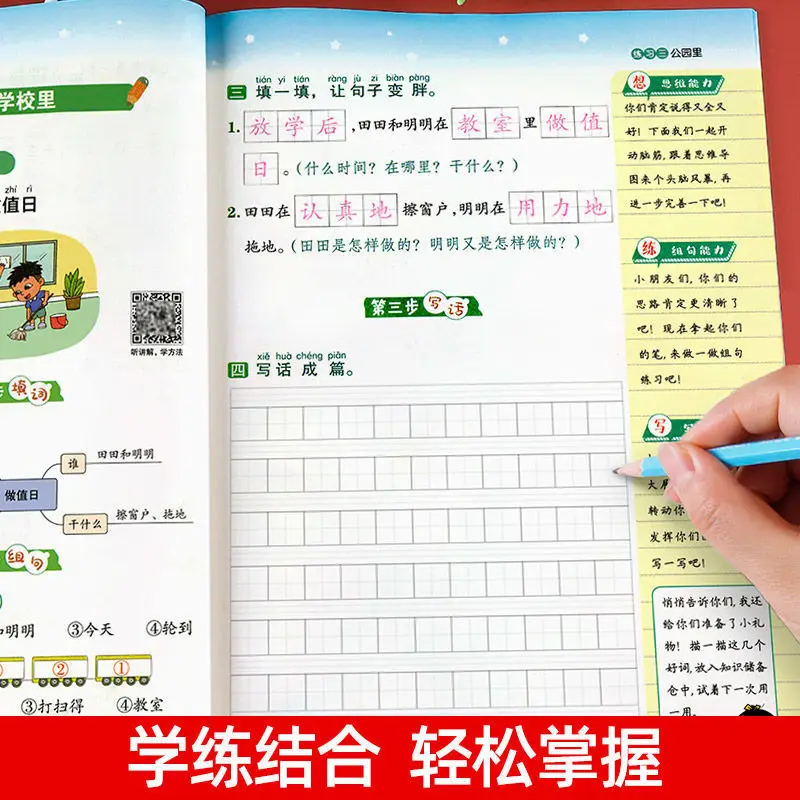 学校里
zhí rì
值日
听讲解，学方法
填词
谁
田田和明明
做值日
干什么
擦窗户、拖地
组句
明明
③今天
④轮到
②
①
③打扫得
④教室
练习三 公园里
tián yi tián ràng jù zi biàn pàng
三 填一填，让句子变胖。
1. 放学后，田田和明明在教室里做值
日。（什么时间？在哪里？干什么？）
2. 田田在认真地擦窗户，明明在用力地
拖地。（田田是怎样做的？明明又是怎样做的？）
第三步 写话
xiě huà chéng piān
四 写话成篇。
想 思维能力
你们肯定说得又全又
好！下面我们一起开
动脑筋，跟着思维导
图来个头脑风暴，再
进一步完善一下吧！
练 组句能力
小朋友们，你们的
思路肯定更清晰了
吧！现在拿起你们
的笔，来做一做组句
练习吧！
写
大
转动你
发挥你们
写一写吧！
悄悄告诉你们，我还
给你们准备了小礼
物！描一描这几个
好词，放入知识储备
仓中，试着下一次用
一用。
学练结合 轻松掌握